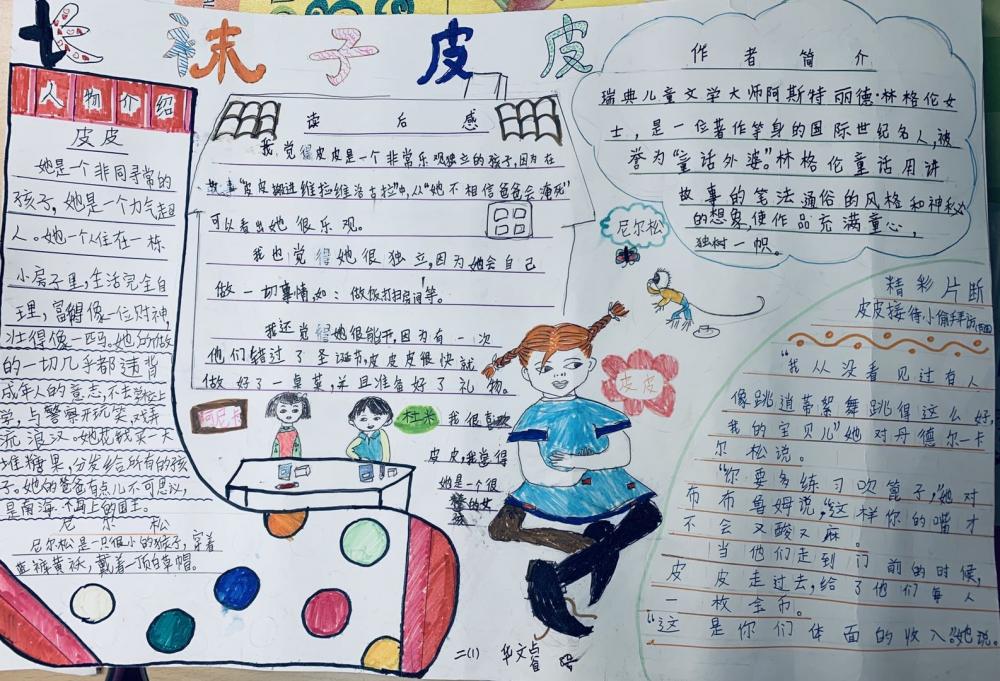 长袜子皮皮
人物介绍
皮皮
她是一个非同寻常的
孩子,她是一个力气超
人。她一个人住在一栋
小房子里,生活完全自
理,富得像一位财神,
壮得像一匹马。她所做
的一切几乎都违背
成年人的意志,不去学校上
学,与警察开玩笑,戏弄
流浪汉。她花钱买一大
堆糖果,分发给所有的孩
子。她的爸爸有点儿不可思议,
是南海一个岛上的国王。
尼尔松
尼尔松是一只很小的猴子,穿着
蓝裤黄袄,戴着一顶白草帽。
读后感
我觉得皮皮是一个非常乐观独立的孩子,因为在
故事“皮皮搬进维拉维洛古拉”中,从“她不相信爸爸会淹死”
可以看出她很乐观。
我也觉得她很独立,因为她会自己
做一切事情,如:做饭打扫房间等。
我还觉得她很能干,因为有一次
他们错过了圣诞节,皮皮皮很快就
做好了一桌菜,并且准备好了礼物。
阿尼卡
杜米
我很喜欢
皮皮,我觉得
她是一个很
棒的女
孩
作者简介
瑞典儿童文学大师阿斯特丽德·林格伦女
士,是一位著作等身的国际世纪名人,被
誉为“童话外婆”林格伦童话用讲
故事的笔法通俗的风格和神秘
的想象,使作品充满童心,
独树一帜。
尼尔松
皮皮
精彩片断
皮皮接待小偷拜访
“我从没看见过有人
像跳逍蒂絮舞跳得这么好,
我的宝贝儿”她对丹德尔-卡
尔松说。
“你要多练习吹篦子,”她对
布布鲁姆说,“这样你的嘴才
不会又酸又麻。
当他们走到门前的时候,
皮皮走过去,给了他们每人
一枚金币。
“这是你们体面的收入。”她说。
二(1) 华文